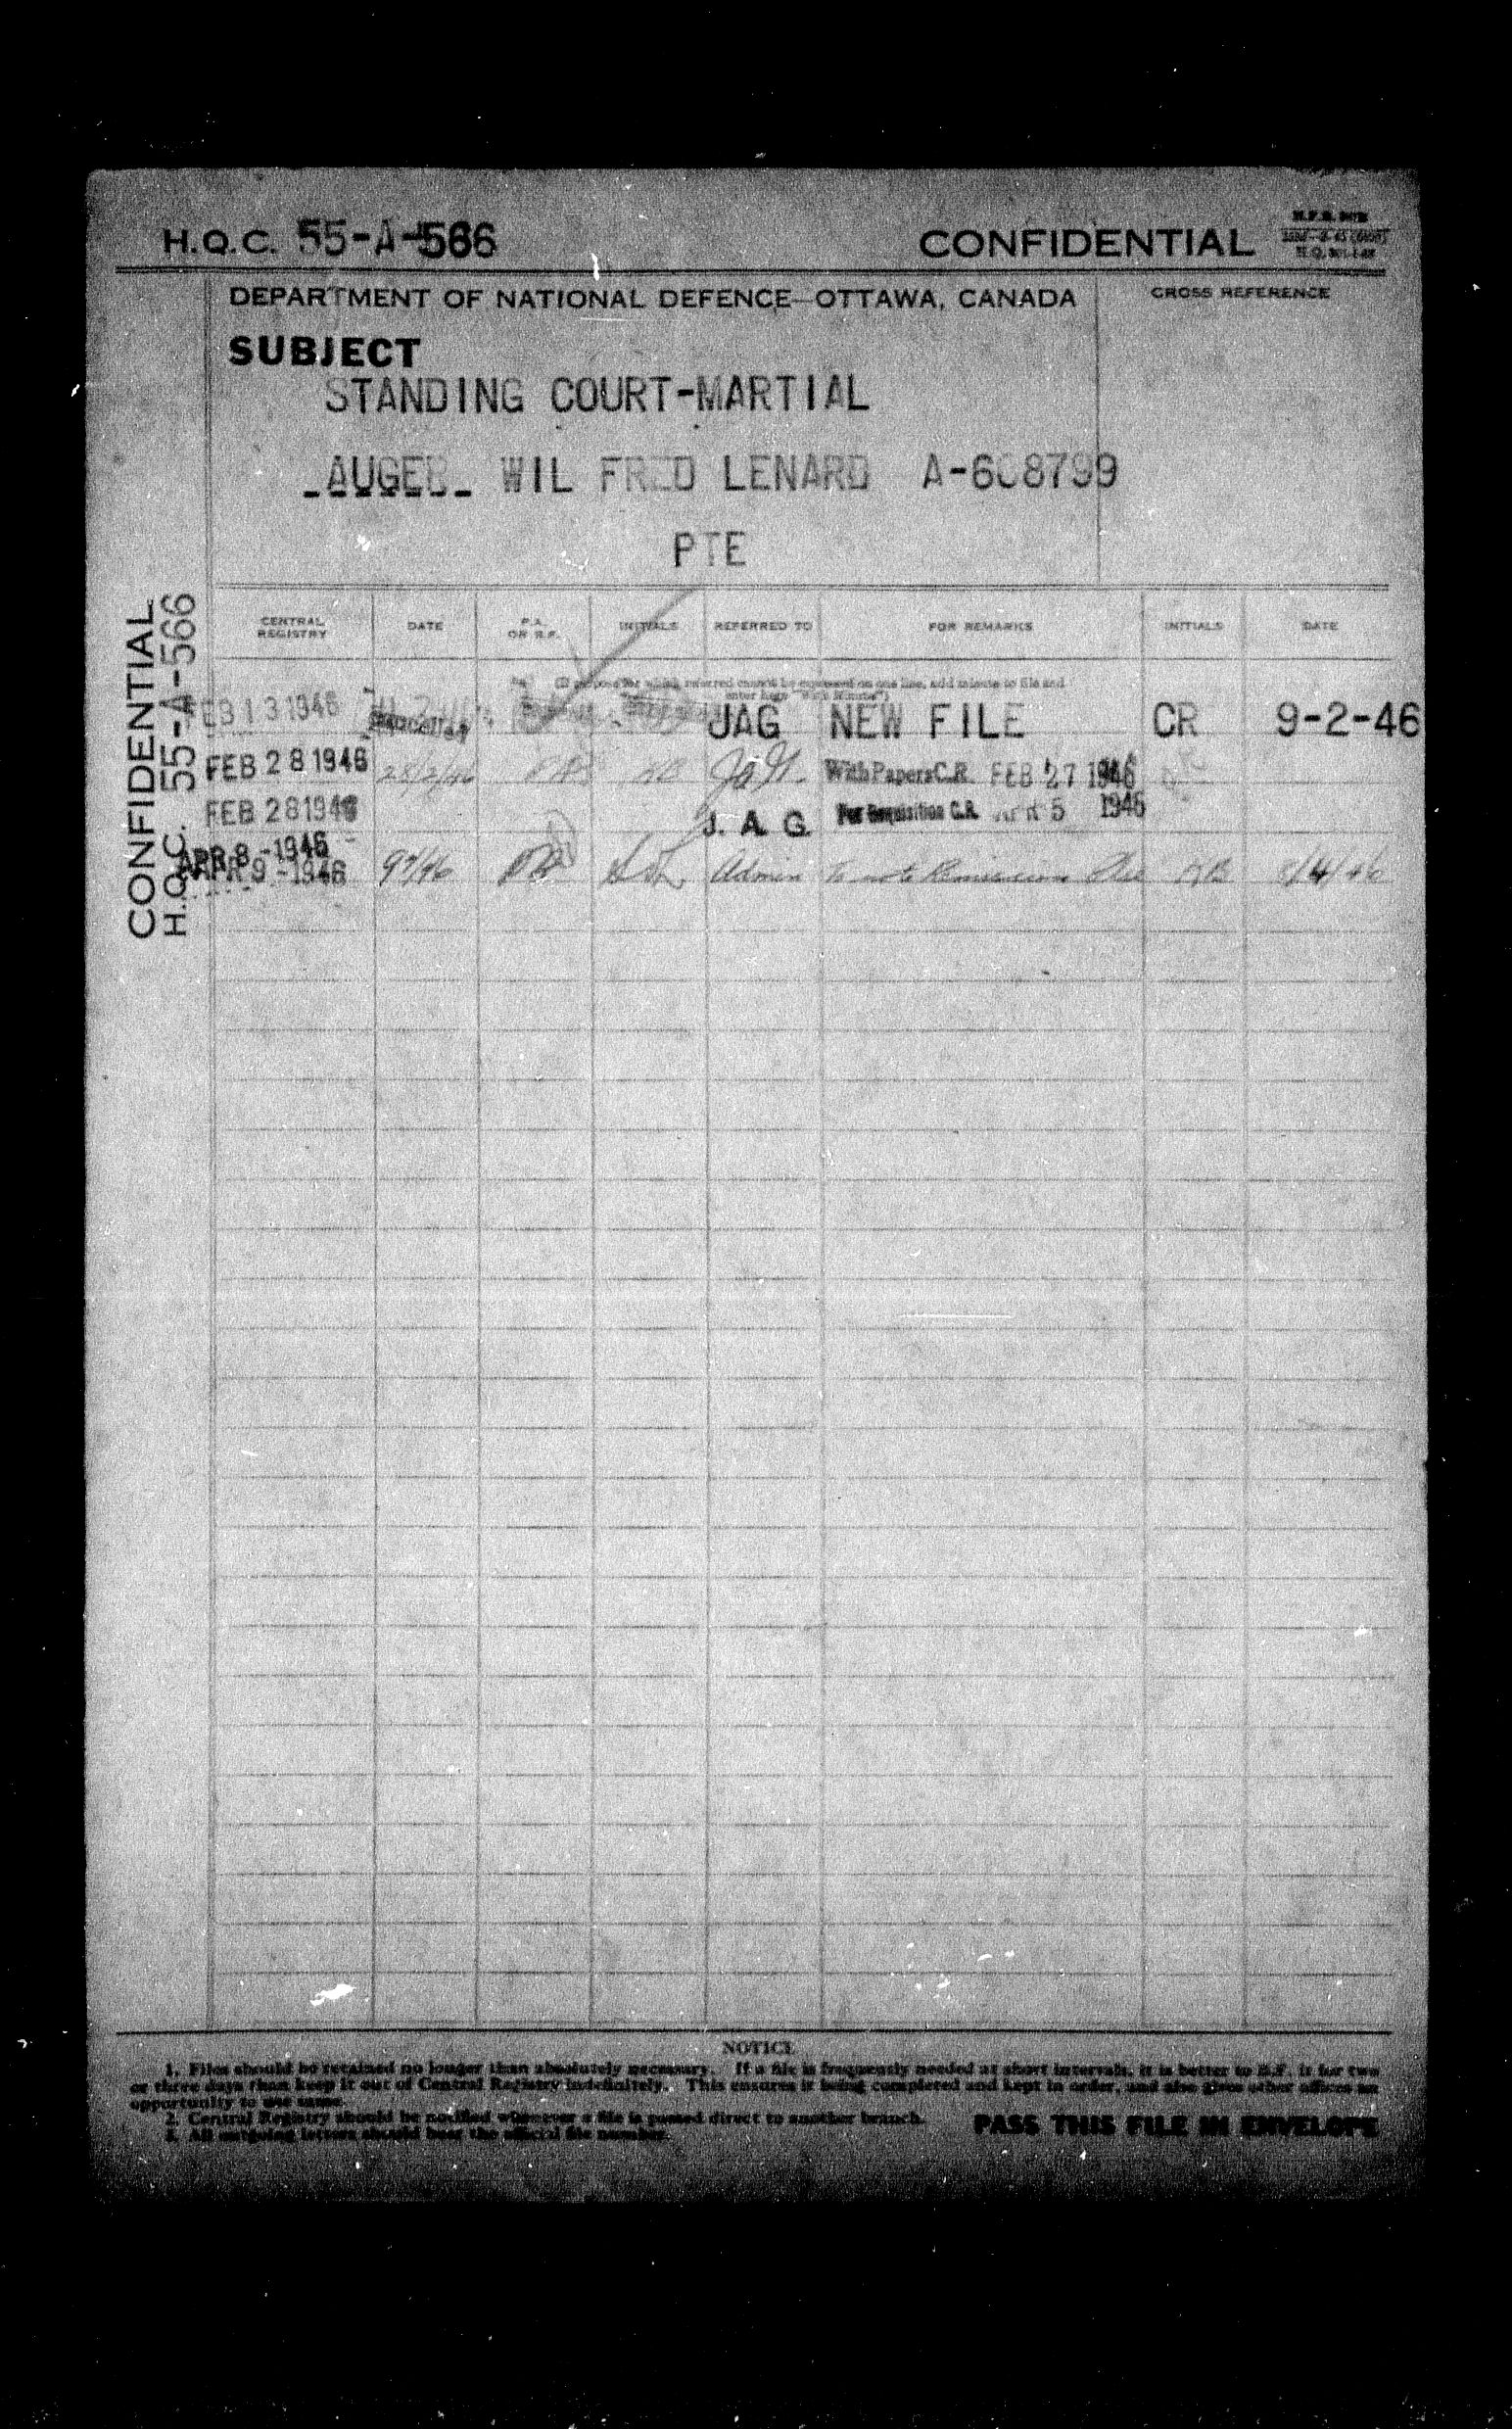 H.Q.C. 55-A-566
CONFIDENTIAL
DEPARTMENT OF NATIONAL DEFENCE—OTTAWA, CANADA
CROSS REFERENCE
SUBJECT
STANDING COURT-MARTIAL
WIL FRED LENARD A-608799
PTE
CONFIDENTIAL
H.Q.C. 55-A-566
CENTRAL REGISTRY DATE P.A. OR B.F. INITIALS REFERRED TO FOR REMARKS INITIALS DATE
(If purpose for which referred cannot be expressed on one line, add minute to file and
enter here "With Minute")
FEB 13 1946 JAG NEW FILE CR 9-2-46
FEB 28 1946 28/2/46 JAG. With Papers C.R. FEB 27 1946
FEB 28 1946 J. A. G. For Requisition C.R. APR 5 1946
APR 8 - 1946
APR 9 - 1946 9/4/46 PA Admin to note Remission Plse KB 8/4/46
NOTICE
1. Files should be retained no longer than absolutely necessary. If a file is frequently needed at short intervals, it is better to B.F. it for two
or three days than keep it out of Central Registry indefinitely. This ensures it being completed and kept in order, and also gives other offices an
opportunity to use same.
2. Central Registry should be notified whenever a file is passed direct to another branch.
3. All outgoing letters should bear the official file number.
PASS THIS FILE IN ENVELOPE